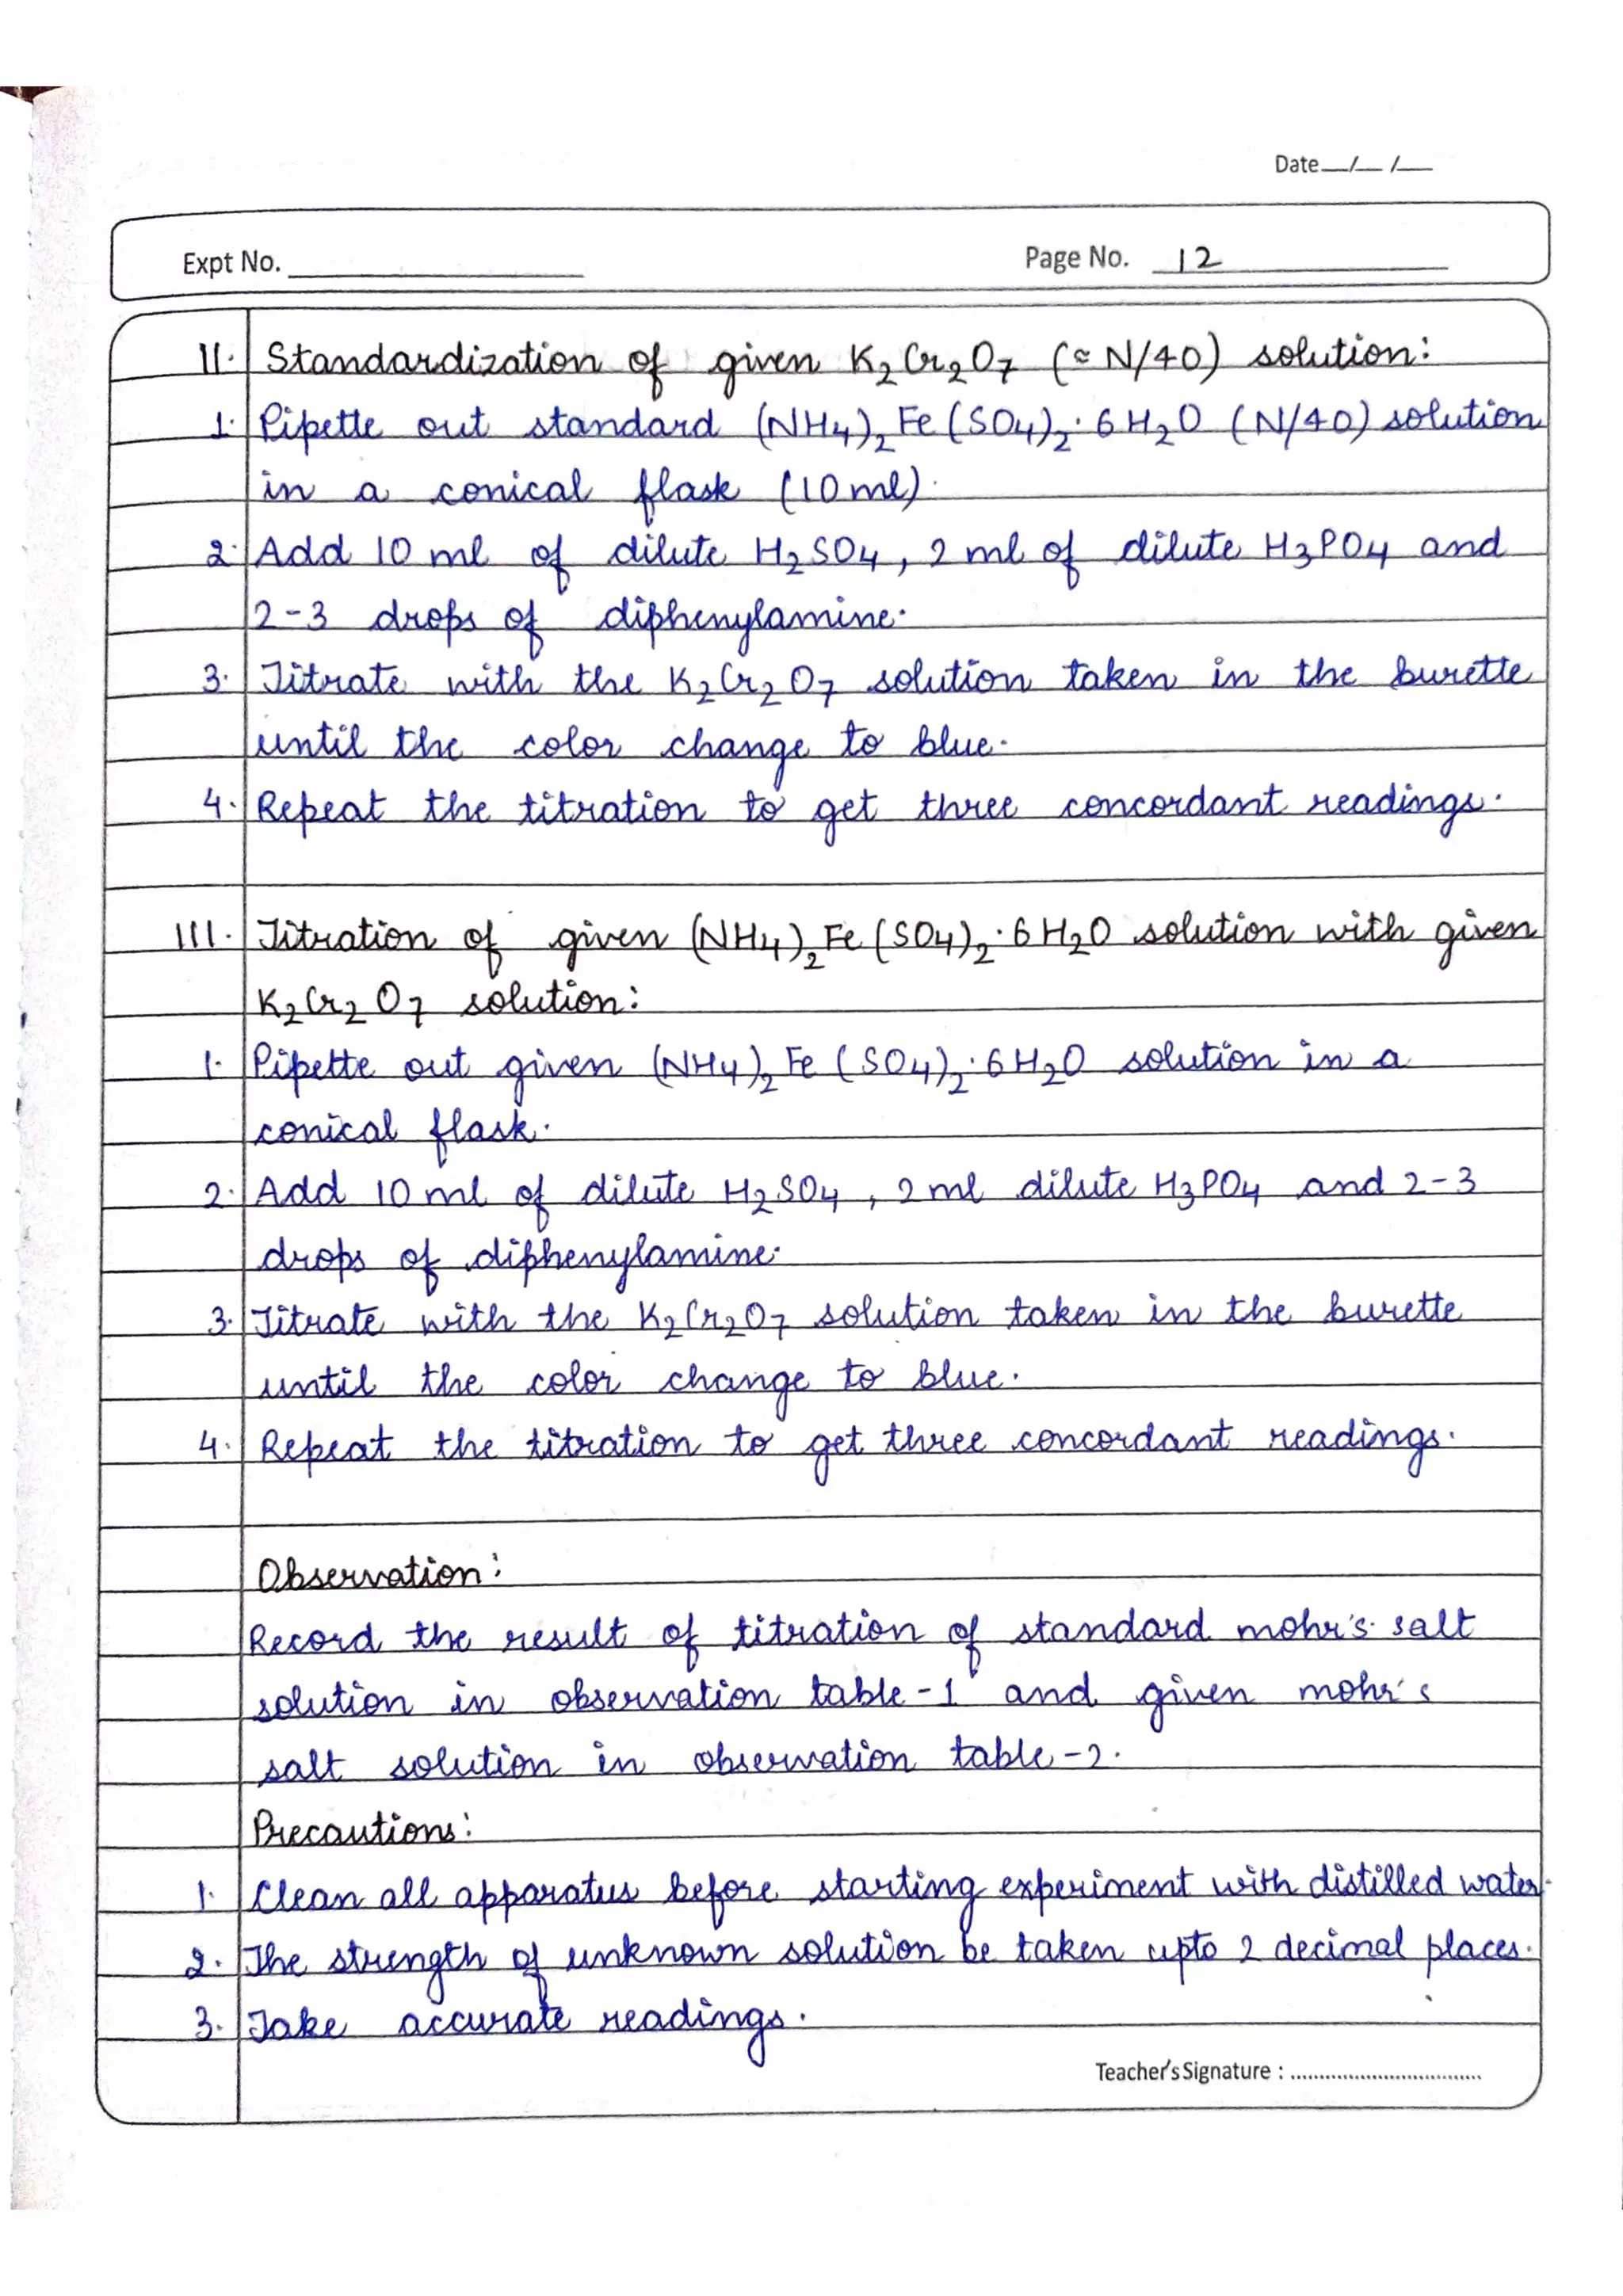 Date__/__/__
Expt No. Page No. 12
II. Standardization of given K₂Cr₂O₇ (≈ N/40) solution:
1. Pipette out standard (NH₄)₂Fe(SO₄)₂·6H₂O (N/40) solution
in a conical flask (10 ml).
2. Add 10 ml of dilute H₂SO₄, 2 ml of dilute H₃PO₄ and
2-3 drops of diphenylamine.
3. Titrate with the K₂Cr₂O₇ solution taken in the burette
until the color change to blue.
4. Repeat the titration to get three concordant readings.
III. Titration of given (NH₄)₂Fe(SO₄)₂·6H₂O solution with given
K₂Cr₂O₇ solution:
1. Pipette out given (NH₄)₂Fe(SO₄)₂·6H₂O solution in a
conical flask.
2. Add 10 ml of dilute H₂SO₄, 2 ml dilute H₃PO₄ and 2-3
drops of diphenylamine.
3. Titrate with the K₂Cr₂O₇ solution taken in the burette
until the color change to blue.
4. Repeat the titration to get three concordant readings.
Observation:
Record the result of titration of standard mohr's salt
solution in observation table-1 and given mohr's
salt solution in observation table-2.
Precautions:
1. Clean all apparatus before starting experiment with distilled water.
2. The strength of unknown solution be taken upto 2 decimal places.
3. Take accurate readings.
Teacher's Signature : ..................................